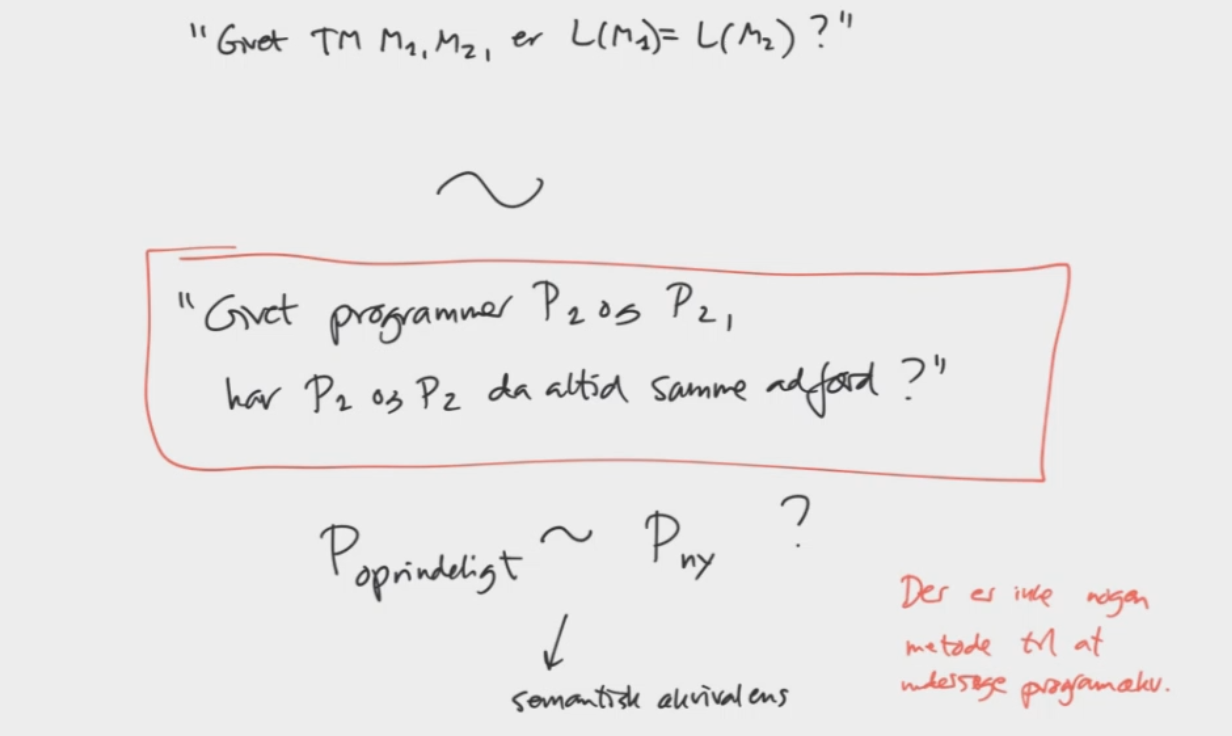 "Givet TM M₁, M₂, er L(M₁) = L(M₂) ?"
~
"Givet programmer P₁ og P₂,
har P₁ og P₂ da altid samme adfærd ?"
P oprindeligt ~ P ny ?
↓
semantisk ækvivalens
Der er ikke nogen
metode til at
undersøge programækv.